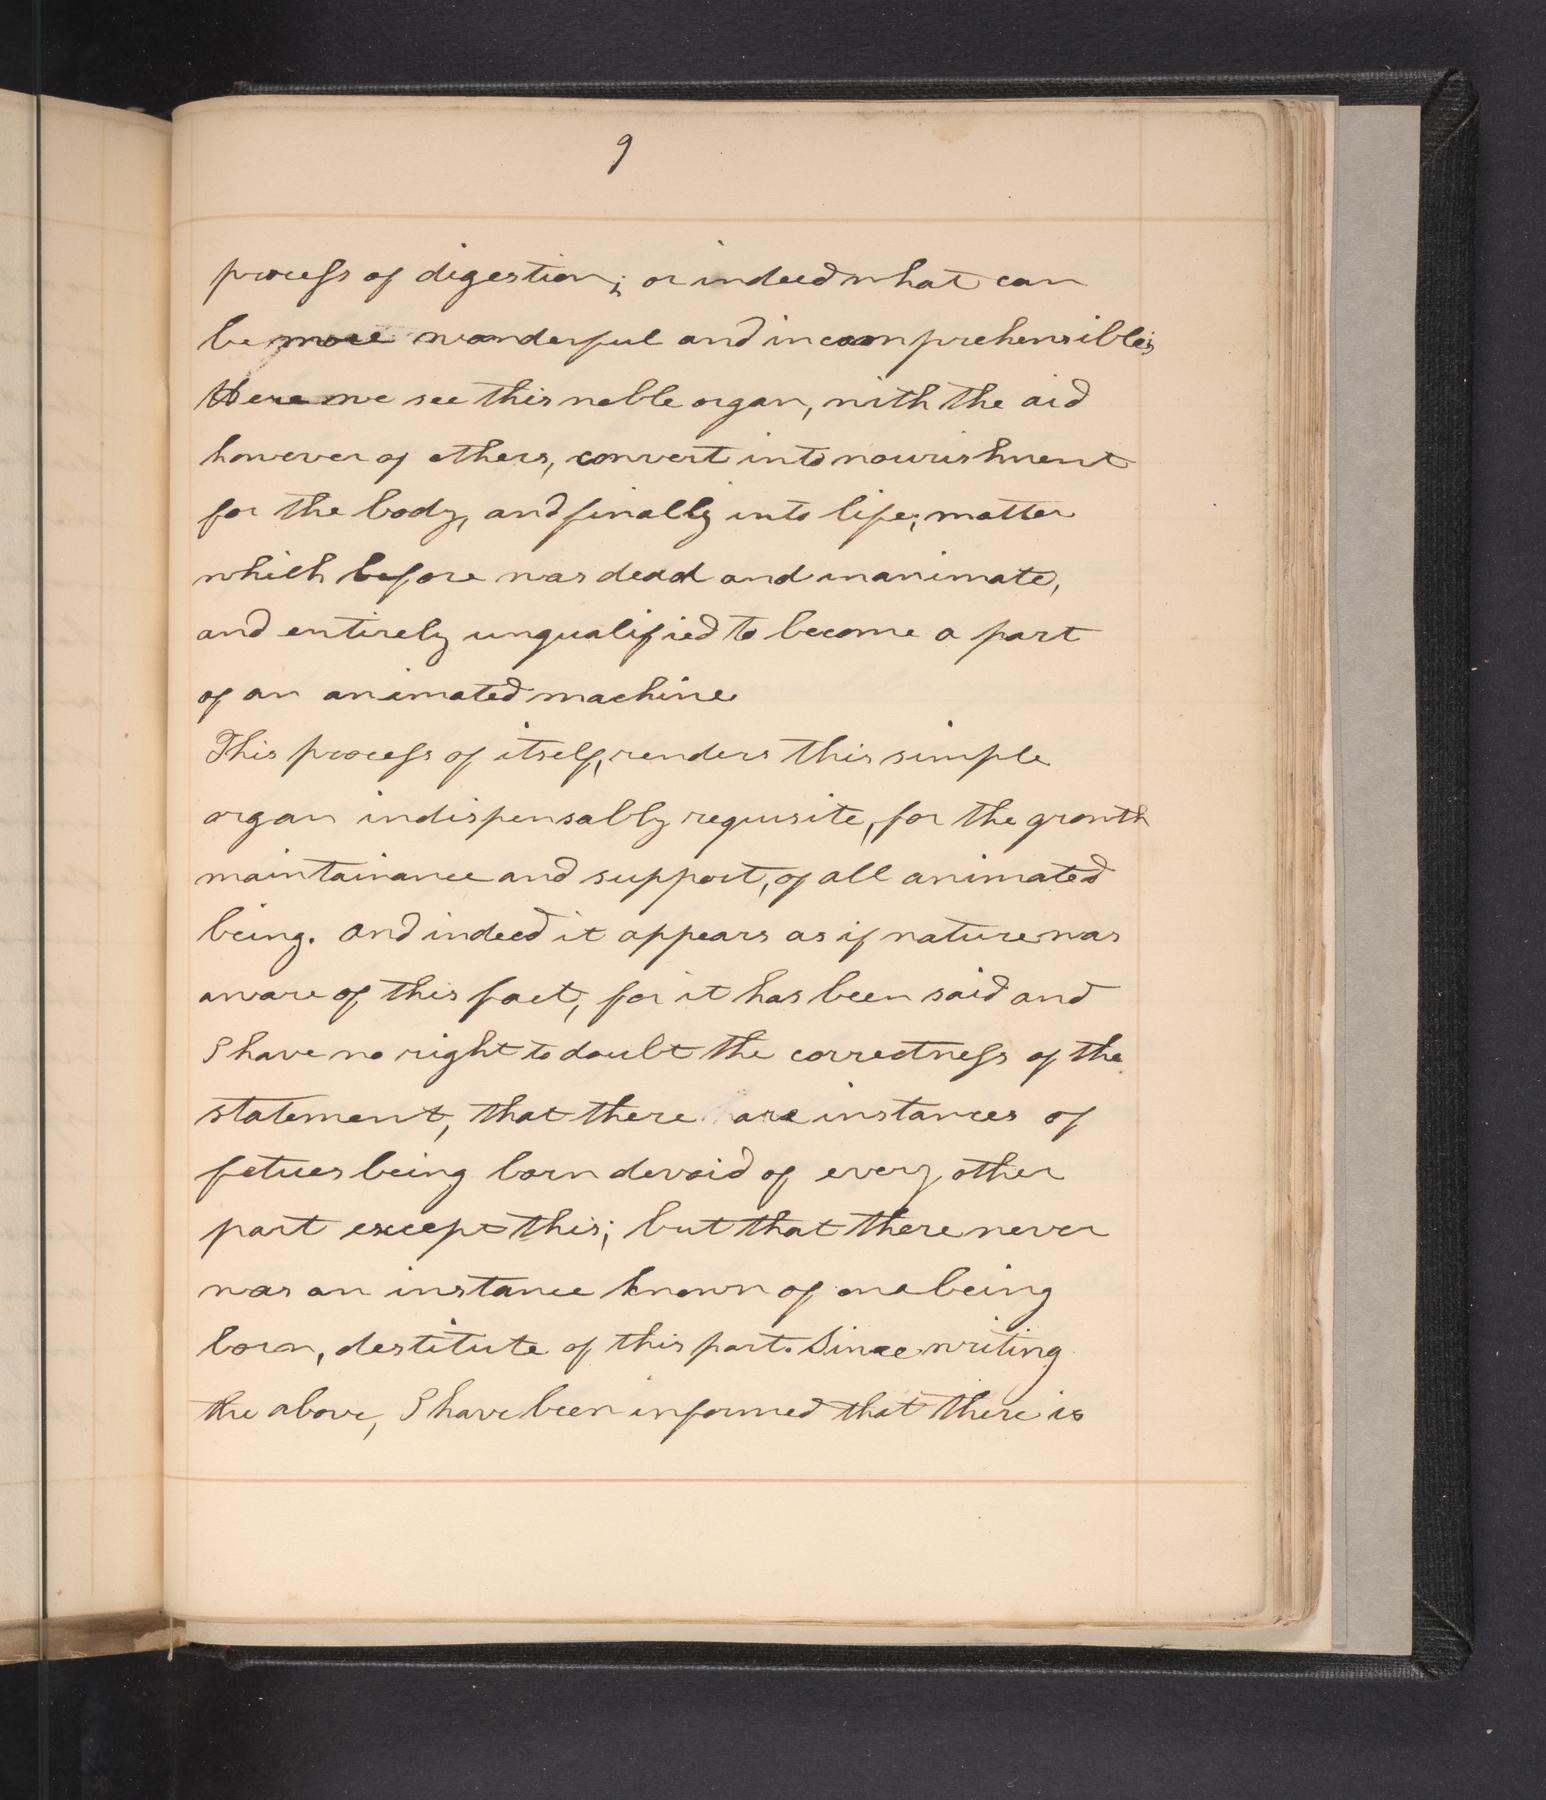 9
process of digestion; or indeed what can
be more wonderful and incomprehensible;
Here we see this noble organ, with the aid
however of others, convert into nourishment
for the body, and finally into life; matter
which before was dead and inanimate,
and entirely unqualified to become a part
of an animated machine
This process of itself, renders this simple
organ indispensably requisite, for the growth
maintainance and support, of all animated
being. And indeed it appears as if nature was
aware of this fact, for it has been said and
I have no right to doubt the correctness of the
statement, that there are instances of
fetues being born devoid of every other
part except this; but that there never
was an instance known of one being
born, destitute of this part. Since writing
the above, I have been informed that there is